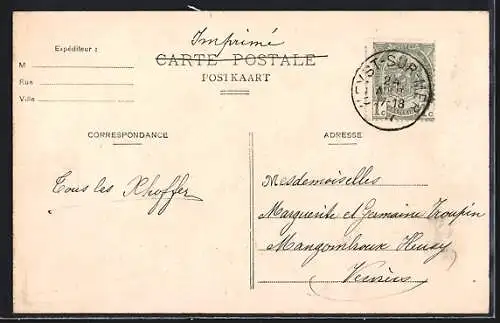 Imprimé
Expéditeur :
CARTE POSTALE
POSTKAART
M
Rue
Ville
HEYST-SUR-MER
17-18
CORRESPONDANCE
ADRESSE
Tous les
Mesdemoiselles
Marguerite et Germaine Troupin
Mangombroux Heusy
Verviers